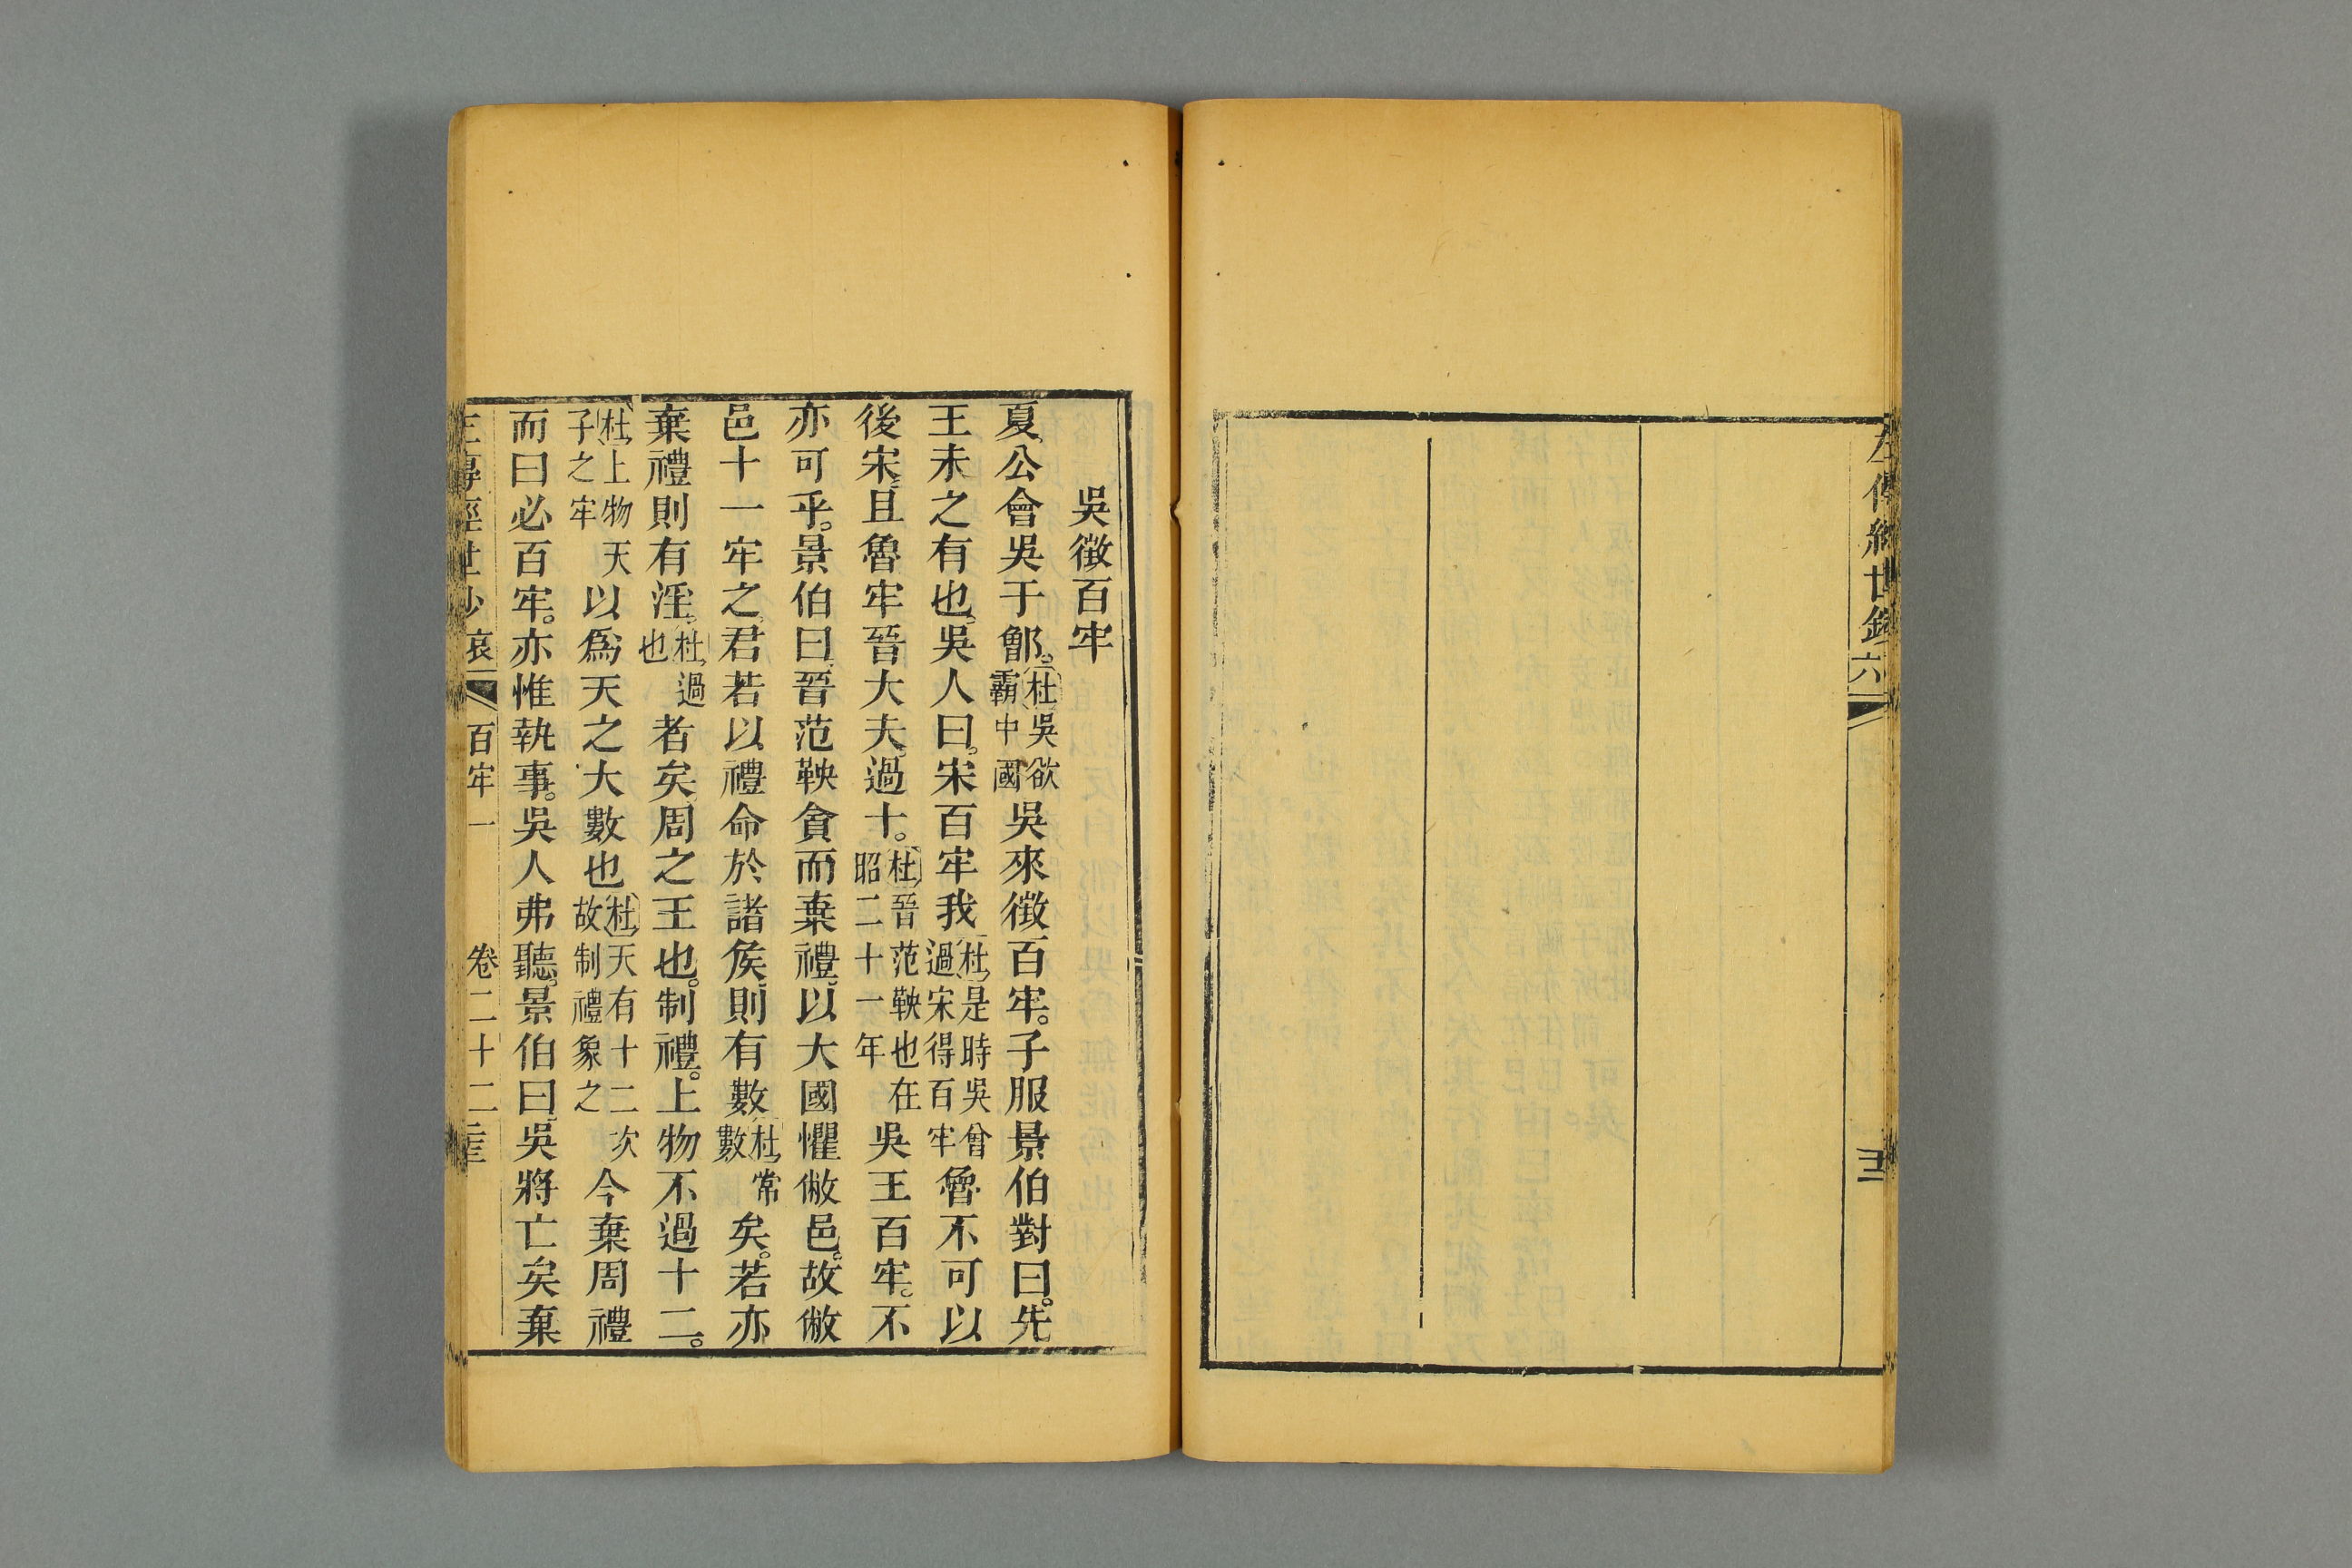 左傳經世鈔 六
吳徵百牢
夏公會吳于鄫。杜吳欲霸中國吳來徵百牢。子服景伯對曰。先
王未之有也。吳人曰。宋百牢我杜是時吳曾過宋得百牢魯不可以
後宋。且魯牢晉大夫過十。杜晉范鞅也在昭二十一年吳王百牢。不
亦可乎。景伯曰。晉范鞅貪而棄禮。以大國懼敝邑。故敝
邑十一牢之。君若以禮命於諸侯。則有數杜常數矣。若亦
棄禮則有淫杜過也者矣。周之王也。制禮。上物不過十二。
杜上物天子之牢以爲天之大數也杜天有十二次故制禮象之今棄周禮
而曰必百牢。亦惟執事。吳人弗聽。景伯曰。吳將亡矣棄
左傳經世鈔 哀 百牢一 卷二十二